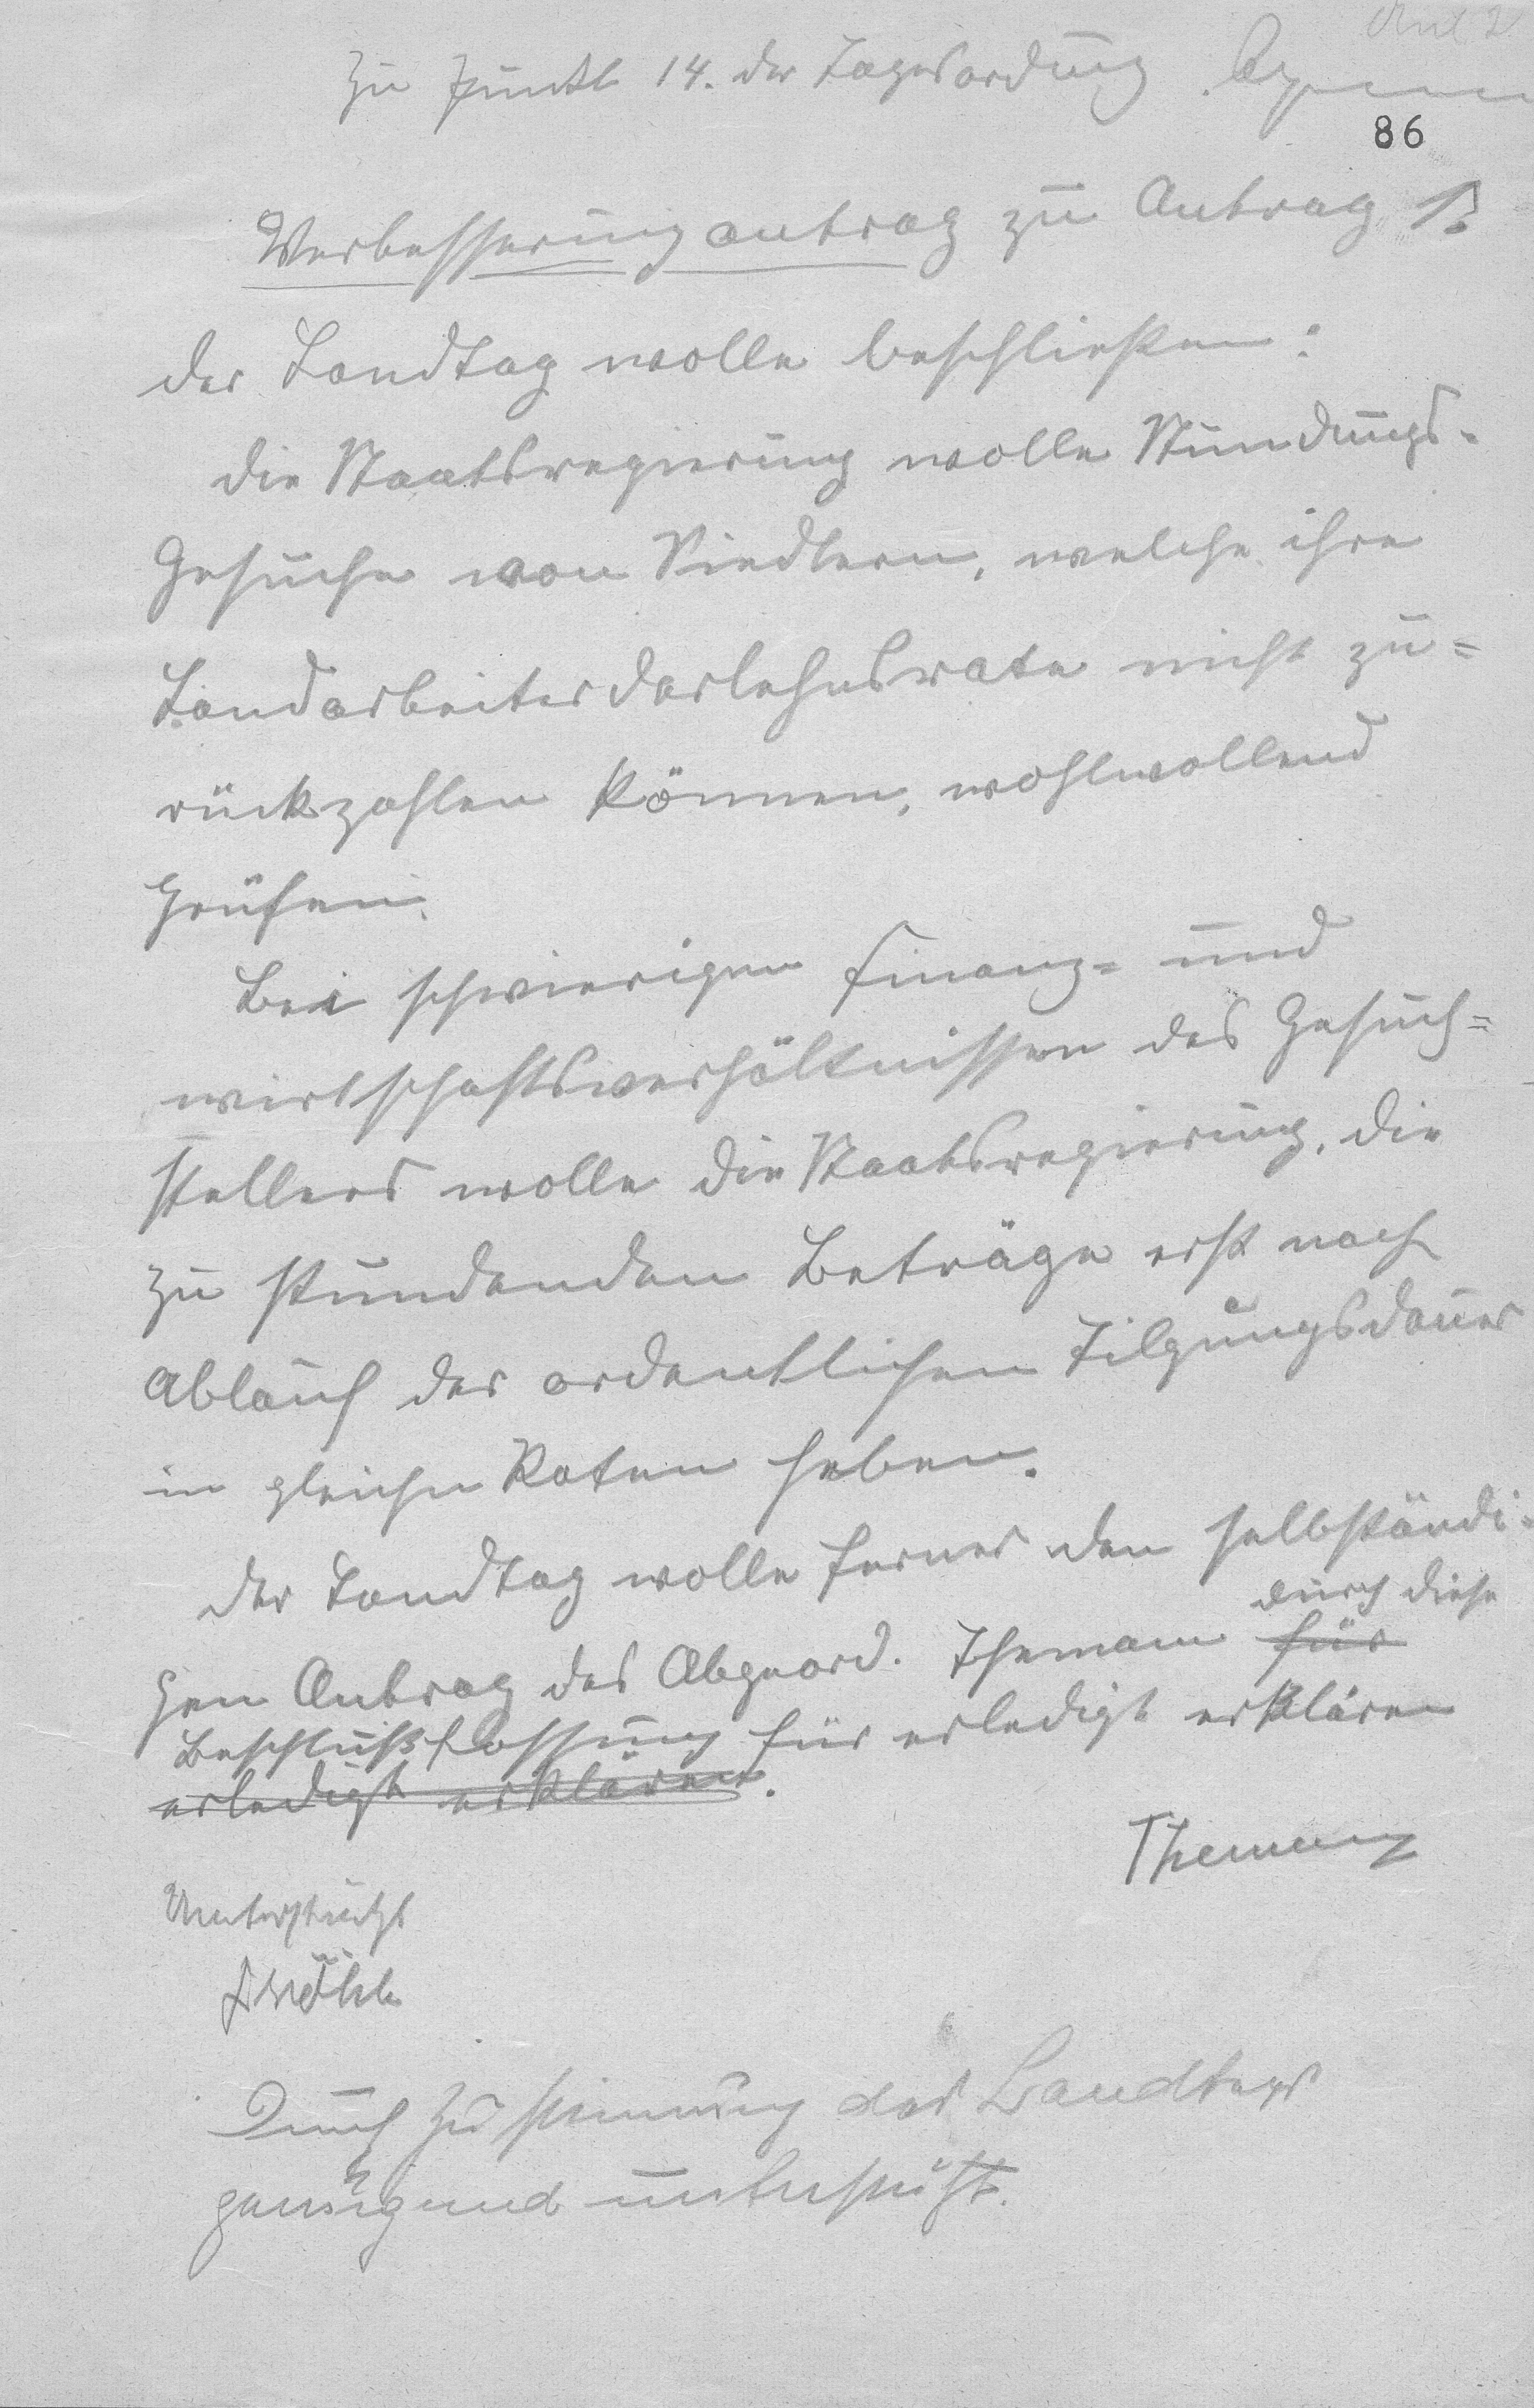 Anl 2
Zu Punkt 14. der Tagesordnung.
86
Verbesserungantrag zu Antrag 1.
der Landtag wolle beschließen:
die Staatsregierung wolle Stundungs-
Gesuche von Siedlern, welche ihre
Landarbeiterdarlehnsrate nicht zu=
rückzahlen können, wohlwollend
prüfen.
Bei schwierigen Finanz= und
wirtschaftsverhältnissen des Gesuch=
stellers wolle die Staatsregierung, die
zu stundenden Beträge erst nach
Ablauf der ordentlichen Tilgungsdauer
in gleichen Raten heben.
der Landtag wolle ferner den selbständi-
durch diese
gen Antrag des Abgeord. Themann für
Beschlußfassung für erledigt erklären
erledigt erklären.
Themann
Unterstützt
Durch Zustimmung des Landtags
genügend unterstützt.